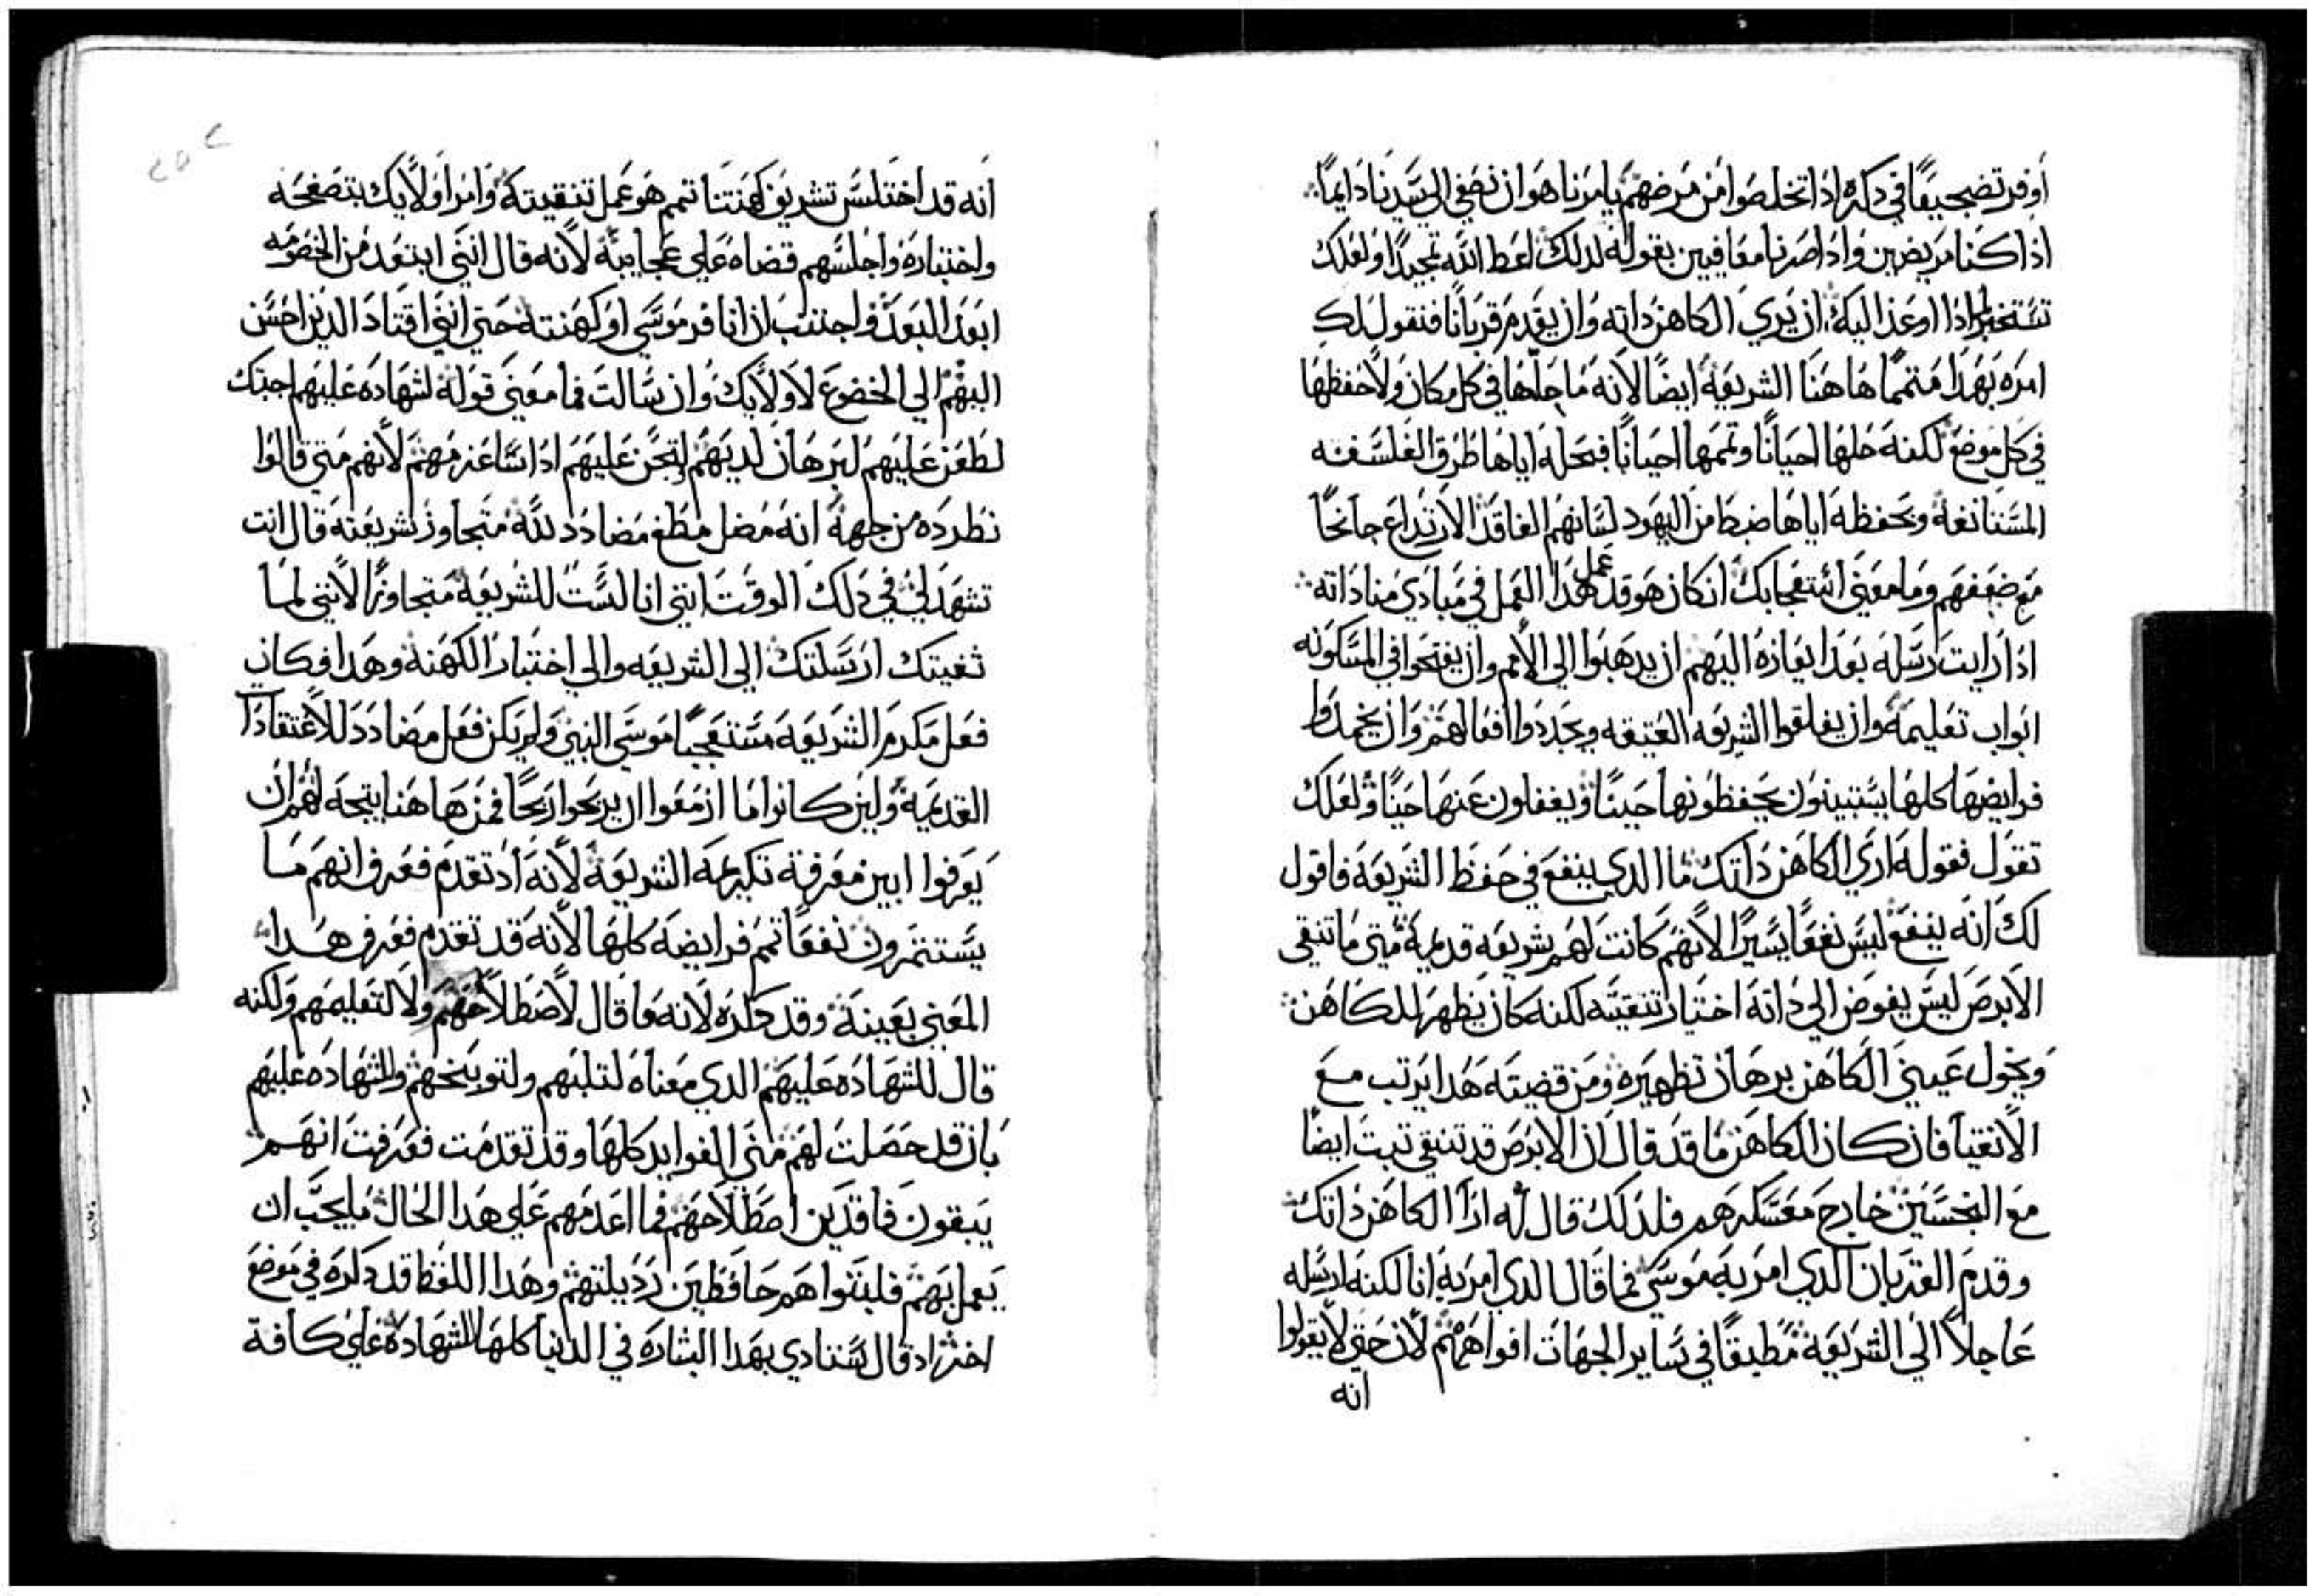 اوفر تضجيعًا في دكره اذا تخلصوا من مرضهم يامرنا هو ان نصغي الي سيدنا دايمًا
اذا كنا مريضين واذا صرنا معافيين بقوله لدلك اعط الله تمجيدًا ولعلك
تستخبر لماذا اوعز اليه ان يري الكاهن داته وان يقدم قربانًا فنقول لك
امره بهدا متممًا هاهنا الشريعة ايضًا لانه ما حلها في كل مكان ولا حفظها
في كل موضع لكنه حلها احيانًا وتممها احيانًا فبحله اياها طرق الفلسفه
المستانفة وبحفظه اياها ضبط من اليهود لسانهم الفاقد الارتداع جانحًا
مع ضعفهم وما معني استعجابك ان كان هو قد عمل هدا العمل في مبادي مناداته
اذا رايت رسله بعد ايعازه اليهم ان يدهبوا الي الامم وان يفتحوا في المسكونه
ابواب تعليمه وان يغلقوا الشريعه العتيقه ويجددوا افعالهم وان يخمدوا
فرايضها كلها يستبينون يحفظونها حينًا ويغفلون عنها حينًا ولعلك
تقول فقوله اري الكاهن داتك ما الدي ينفع في حفظ الشريعة فاقول
لك انه ينفع ليس نفعًا يسيرًا لانهم كانت لهم شريعه قديمة متي ما تنقي
الابرص ليس يفوض الي داته اختيار تنقيته لكنه كان يظهر للكاهن
ويخول عيني الكاهن برهان تطهيره ومن قضيته هدا يرتب مع
الانقيا فان كان الكاهن ما قد قال ان الابرص قد تنقي تبت ايضًا
مع النجسين خارج معسكرهم فلدلك قال له ارا الكاهن داتك
وقدم القربان الدي امر به موسي فما قال الدي امر به انا لكنه ارسله
عاجلاً الي الشريعة مطبقًا في ساير الجهات افواههم لان حتي لا يقولوا
انه
انه قد اختلس تشريف كهنتنا تمم هو عمل تنقيته وامر اولايك بتصفحه
واختباره واجلسهم قضاه علي عجايبه لانه قال انني ابتعد من الخصومه
ابعد البعد واجتنب ان انافر موسي او كهنته حتي انني اقتاد الدين احسن
اليهم الي الخضوع لاولايك وان سالت فما معني قوله لشهاده عليهم اجبتك
لطعن عليهم لبرهان لديهم لتحن عليهم ادا شاغزمهم لانهم متي قالوا
نطرده من جهة انه مضل مطغ مضادد لله متجاوز شريعته قال انت
تشهد لي في دلك الوقت انني انا لست للشريعة متجاوزًا لانني لما
ثقيتك ارسلتك الي الشريعه والي اختبار الكهنة وهدا فكان
فعل مكرم الشريعه مستعجبًا موسي النبي ولم يكن فعل مضادد للاعتقادا
القديمة ولين كانوا ما ازمعوا ان يربحوا ربحًا فمن هاهنا يتجه لهم ان
يعرفوا ابين معرفة تكريمه الشريعة لانه اد تقدم فعرف انهم ما
يستثمرون نفعًا تمم فرايضه كلها لانه قد تقدم فعرف هدا
المعني بعينه وقد دكره لانه ما قال لاصطلاحهم ولا لتعليمهم ولكنه
قال للشهاده عليهم الدي معناه لتلبهم ولتوبيخهم والشهاده عليهم
بان قد حصلت لهم مني الفوايد كلها وقد تقدمت فعرفت انهم
يبقون فاقدين اصطلاحهم فما اعدمهم علي هدا الحال ما يجب ان
يعمل بهم فلبتوا هم حافظين رديلتهم وهدا اللفظ قد دكره في موضع
اخر اد قال ستنادي بهدا البشاره في الدنيا كلها للشهادة علي كافة